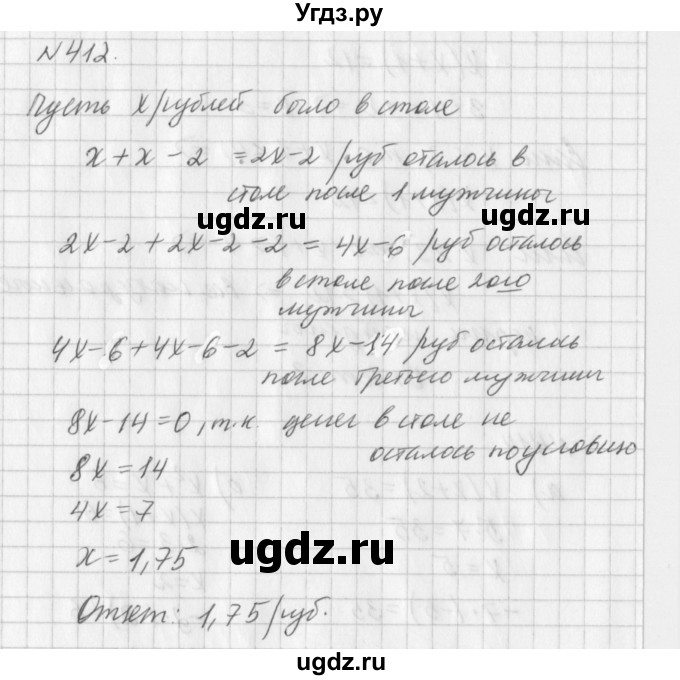 Угдз.ру
№412.
Пусть х/рублей было в столе
x + x - 2 = 2x - 2 /руб оталось в
столе после 1 мужчины
угдз.ру
2x - 2 + 2x - 2 - 2 = 4x - 6 /руб осталось
в столе после 2ого
угдз.ру
мужчины
4x - 6 + 4x - 6 - 2 = 8x - 14 /руб осталось
после третьего мужчины
8x - 14 = 0, т.к. денег в столе не
осталось по условию
8x = 14
4x = 7
x = 1,75
ugdz.ru
Ответ: 1,75 /руб.
ugdz.ru